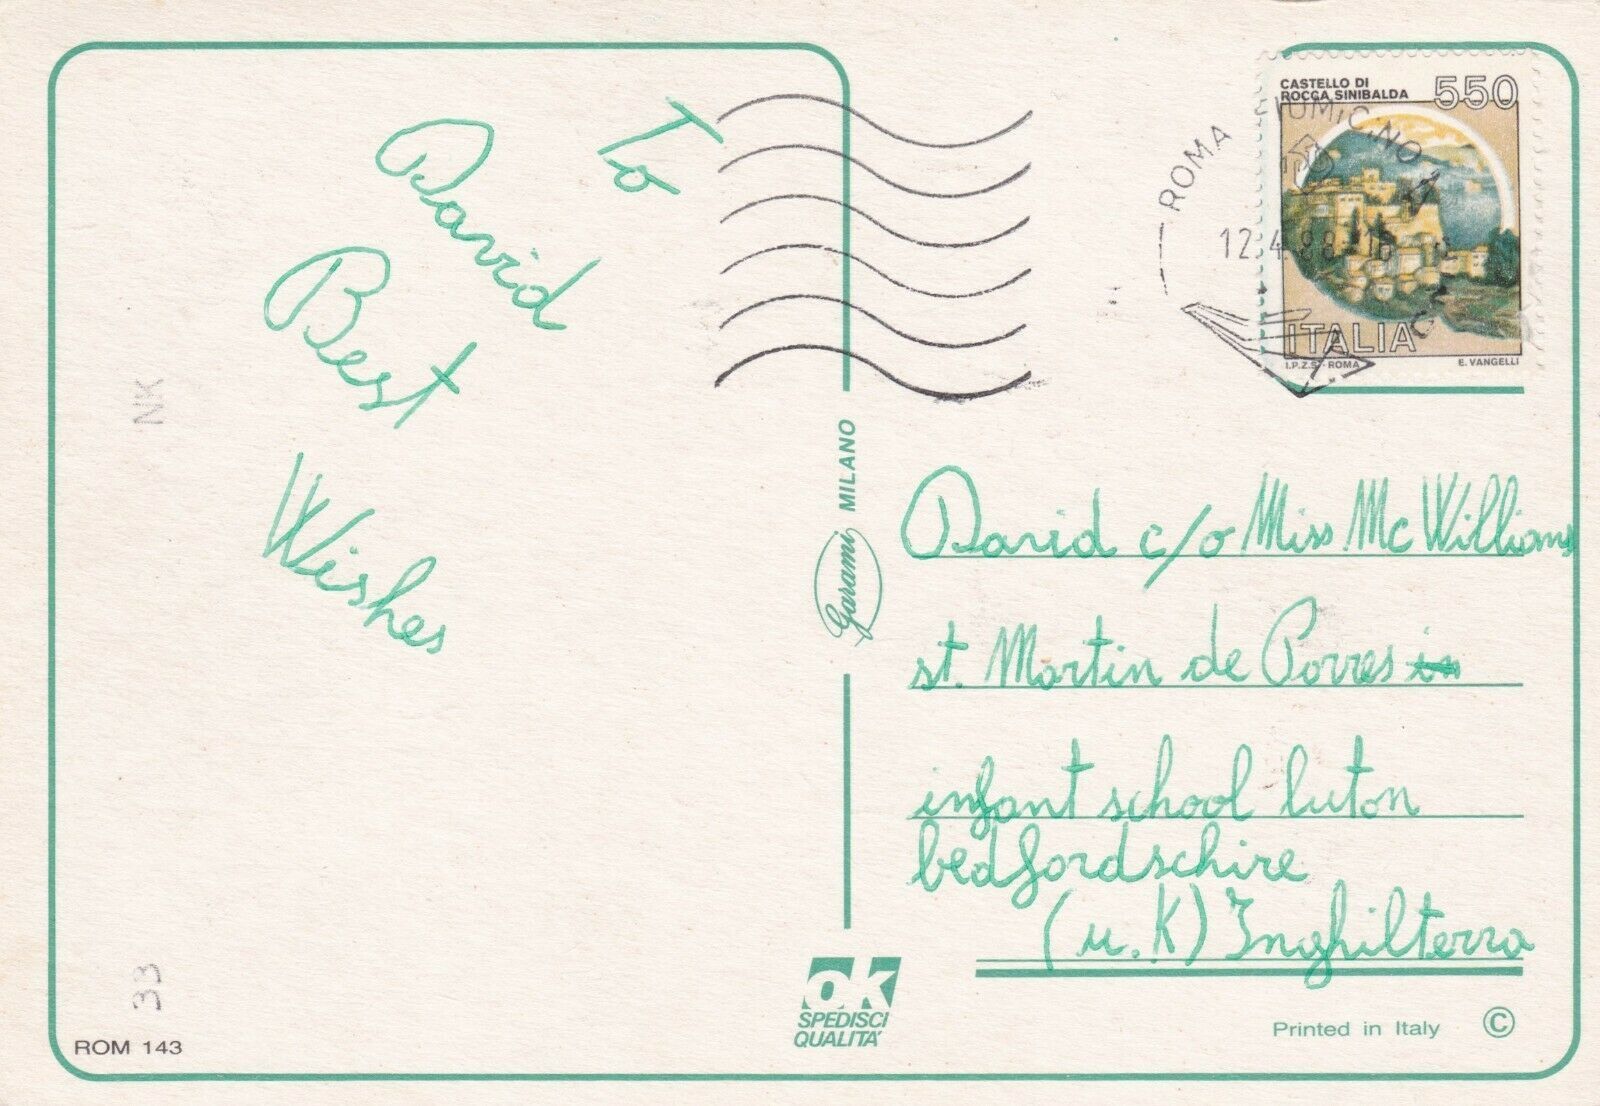 To
David
Best
Wishes
NK
33
ROM 143
Garami MILANO
OK
SPEDISCI
QUALITA'
CASTELLO DI
ROCCA SINIBALDA
550
ITALIA
I.P.Z.S. - ROMA
E. VANGELLI
ROMA FIUMICINO
12.4.88
David c/o Miss Mc Williams
st. Martin de Porres in
infant school luton
bedfordschire
(u.K) Inghilterra
Printed in Italy ©